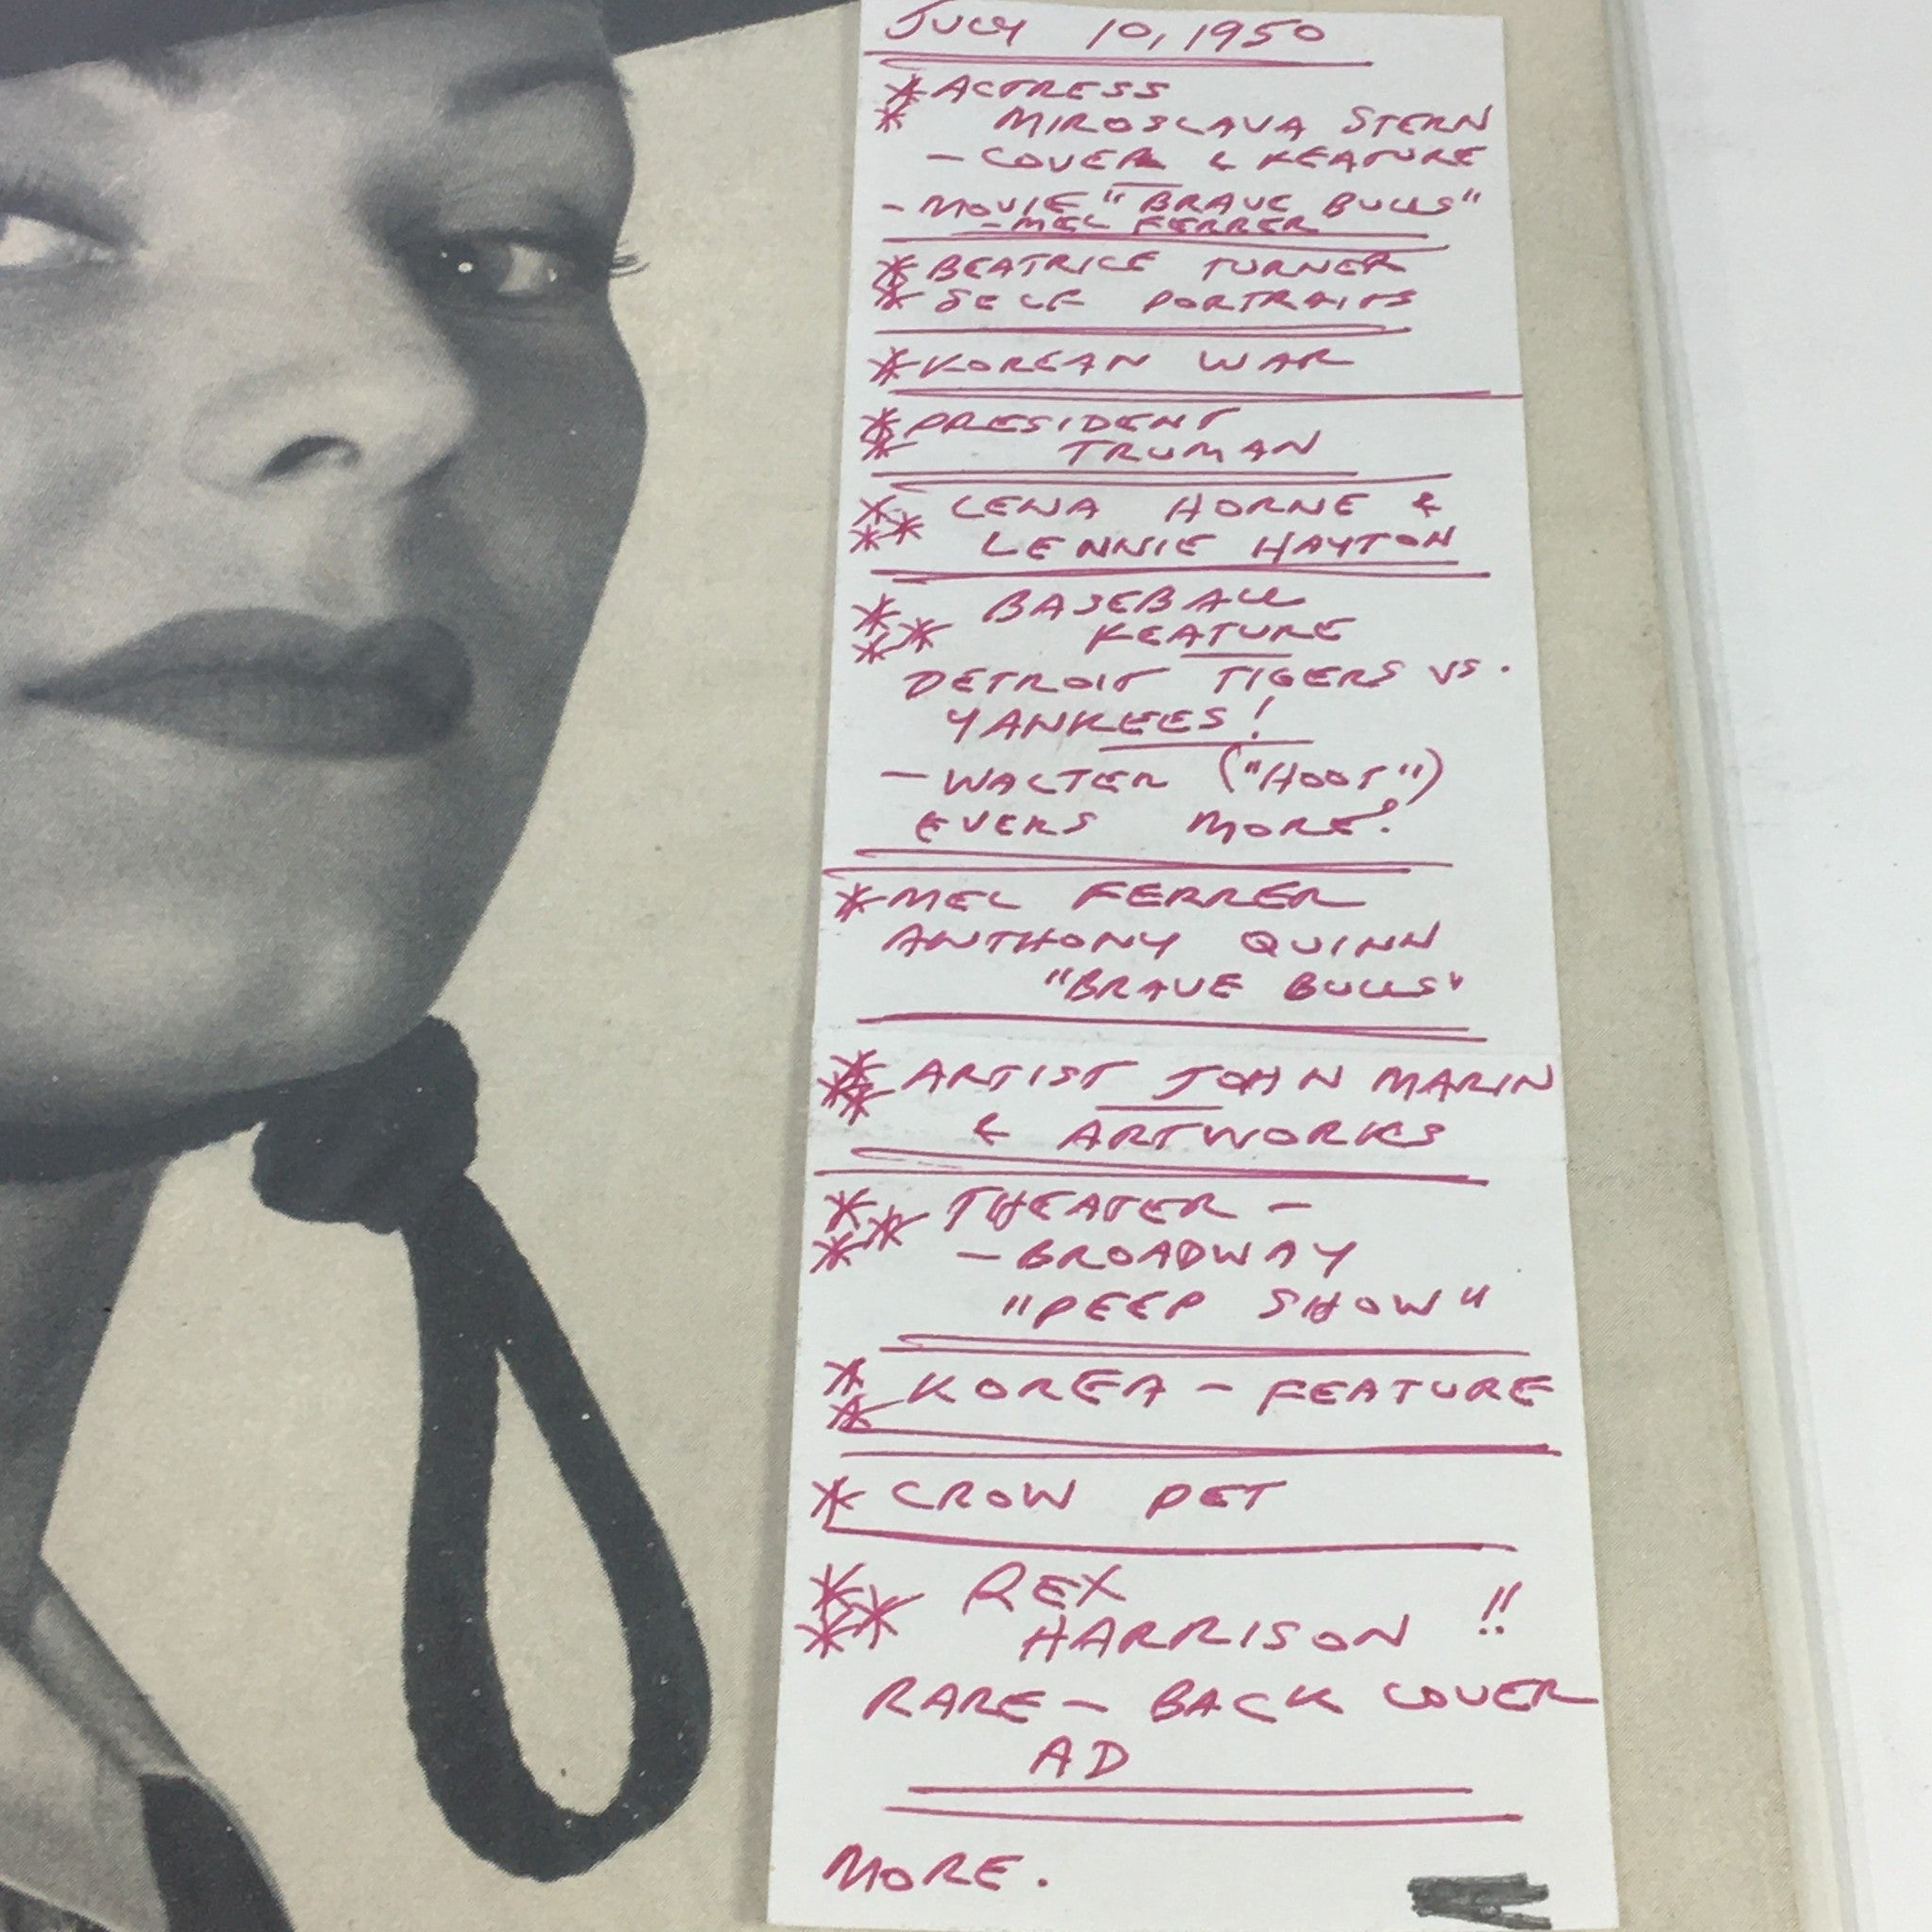 JULY 10, 1950
* ACTRESS
* MIROSLAVA STERN
- COVER & FEATURE
- MOVIE "BRAVE BULLS"
- MEL FERRER
* BEATRICE TURNER
* SELF PORTRAITS
* KOREAN WAR
* PRESIDENT
* TRUMAN
* LENA HORNE &
** LENNIE HAYTON
* BASEBALL
** FEATURE
DETROIT TIGERS VS.
YANKEES!
- WALTER ("HOOT")
EVERS MORE!
* MEL FERRER
ANTHONY QUINN
"BRAVE BULLS"
*** ARTIST JOHN MARIN
& ARTWORKS
** THEATER -
* - BROADWAY
"PEEP SHOW"
** KOREA - FEATURE
* CROW PET
* REX
** HARRISON !!
RARE - BACK COVER
AD
MORE.